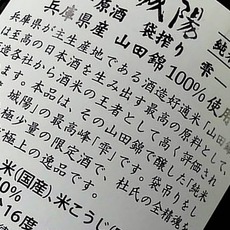 城陽
純米
原酒 袋搾り 雫
兵庫県産 山田錦100%使用
兵庫県が主生産地である酒造好適米「山
は至高の日本酒を生み出す最高の原料として、
造各社から酒米の王者として高く評価され
ます。本品は、その山田錦で醸した「純米
城陽」の最高峰「雫」です。袋吊りをし
極少量の限定酒で、杜氏の全精魂を
極上の逸品です。
米(国産)、米こうじ(
0%
分16度